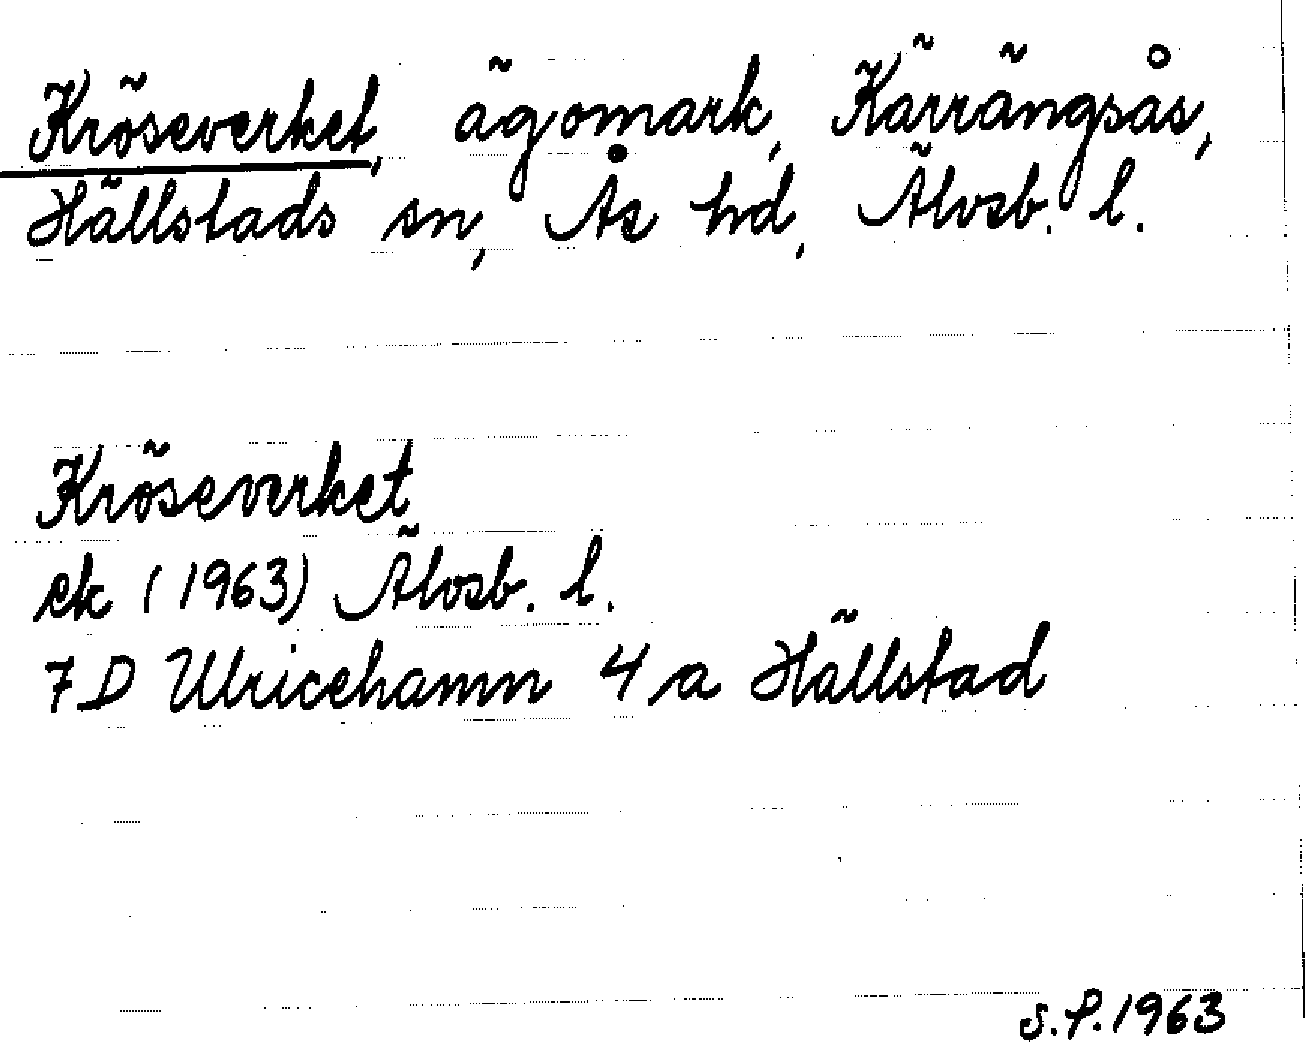 Kröseverket, ägomark, Kärrängsås,
Hällstads sn, Ås hd, Älvsb. l.
Kröseverket
ek (1963) Älvsb. l.
7D Ulricehamn 4 a Hällstad
S.P. 1963